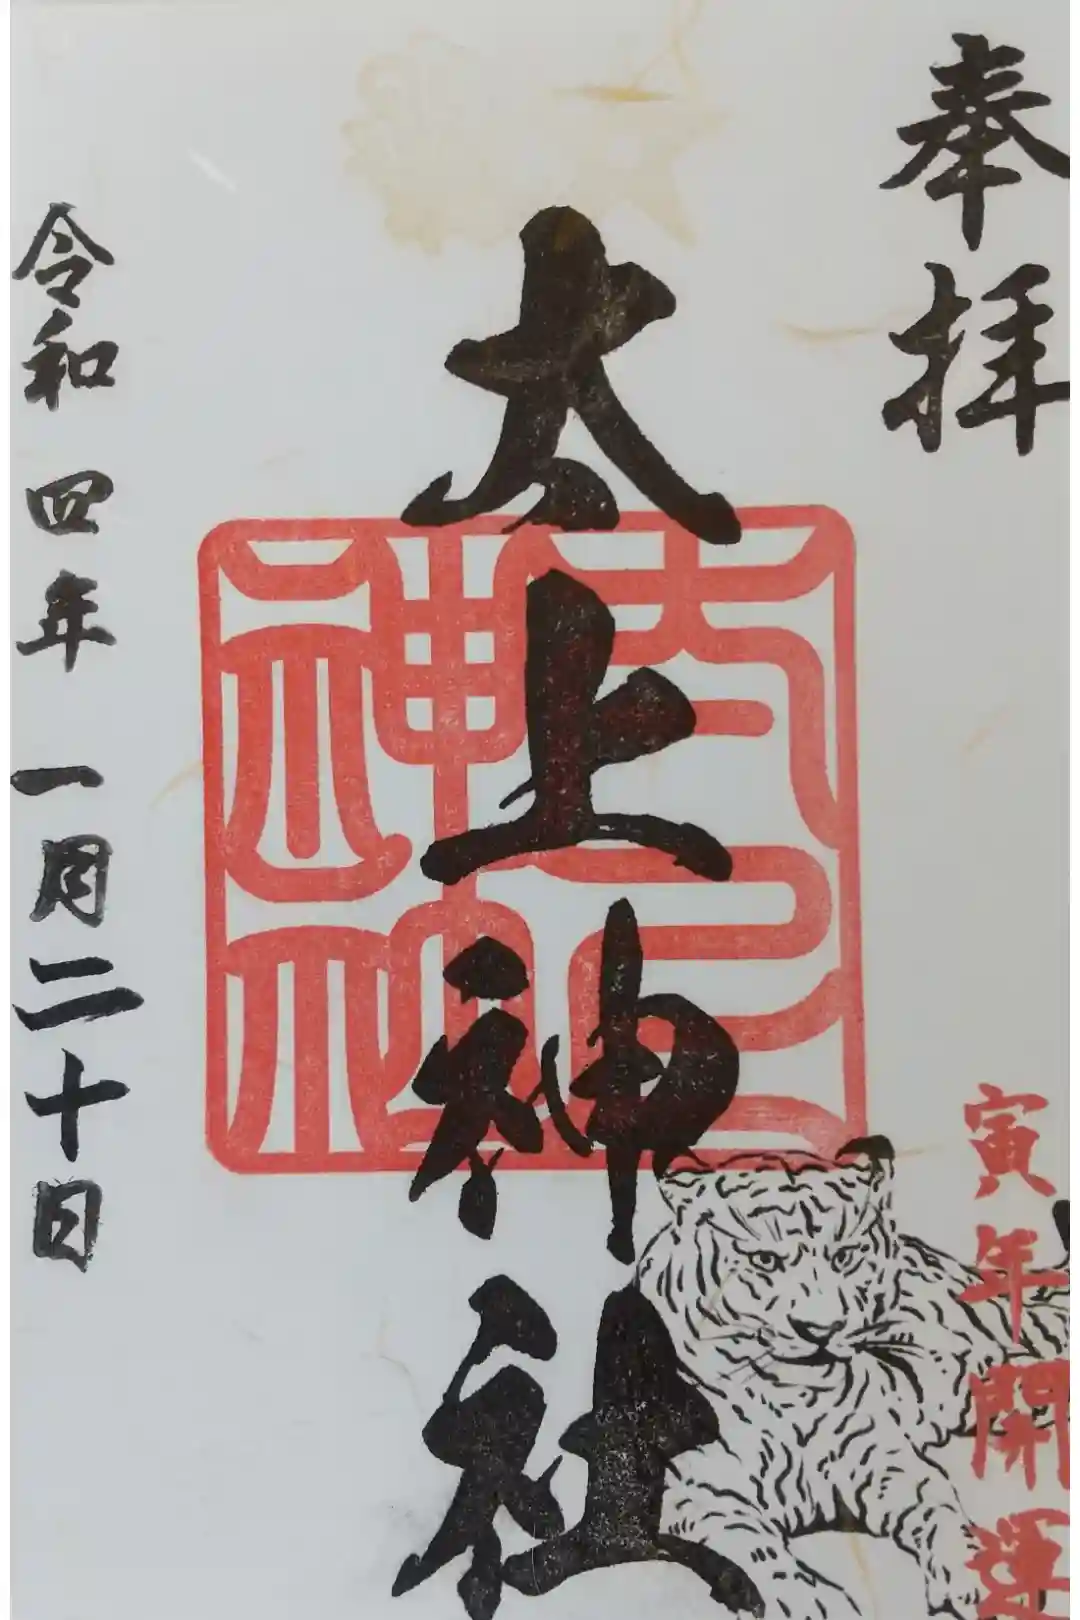 奉拝
太上神社
太上神社
寅年開運
令和四年一月二十日